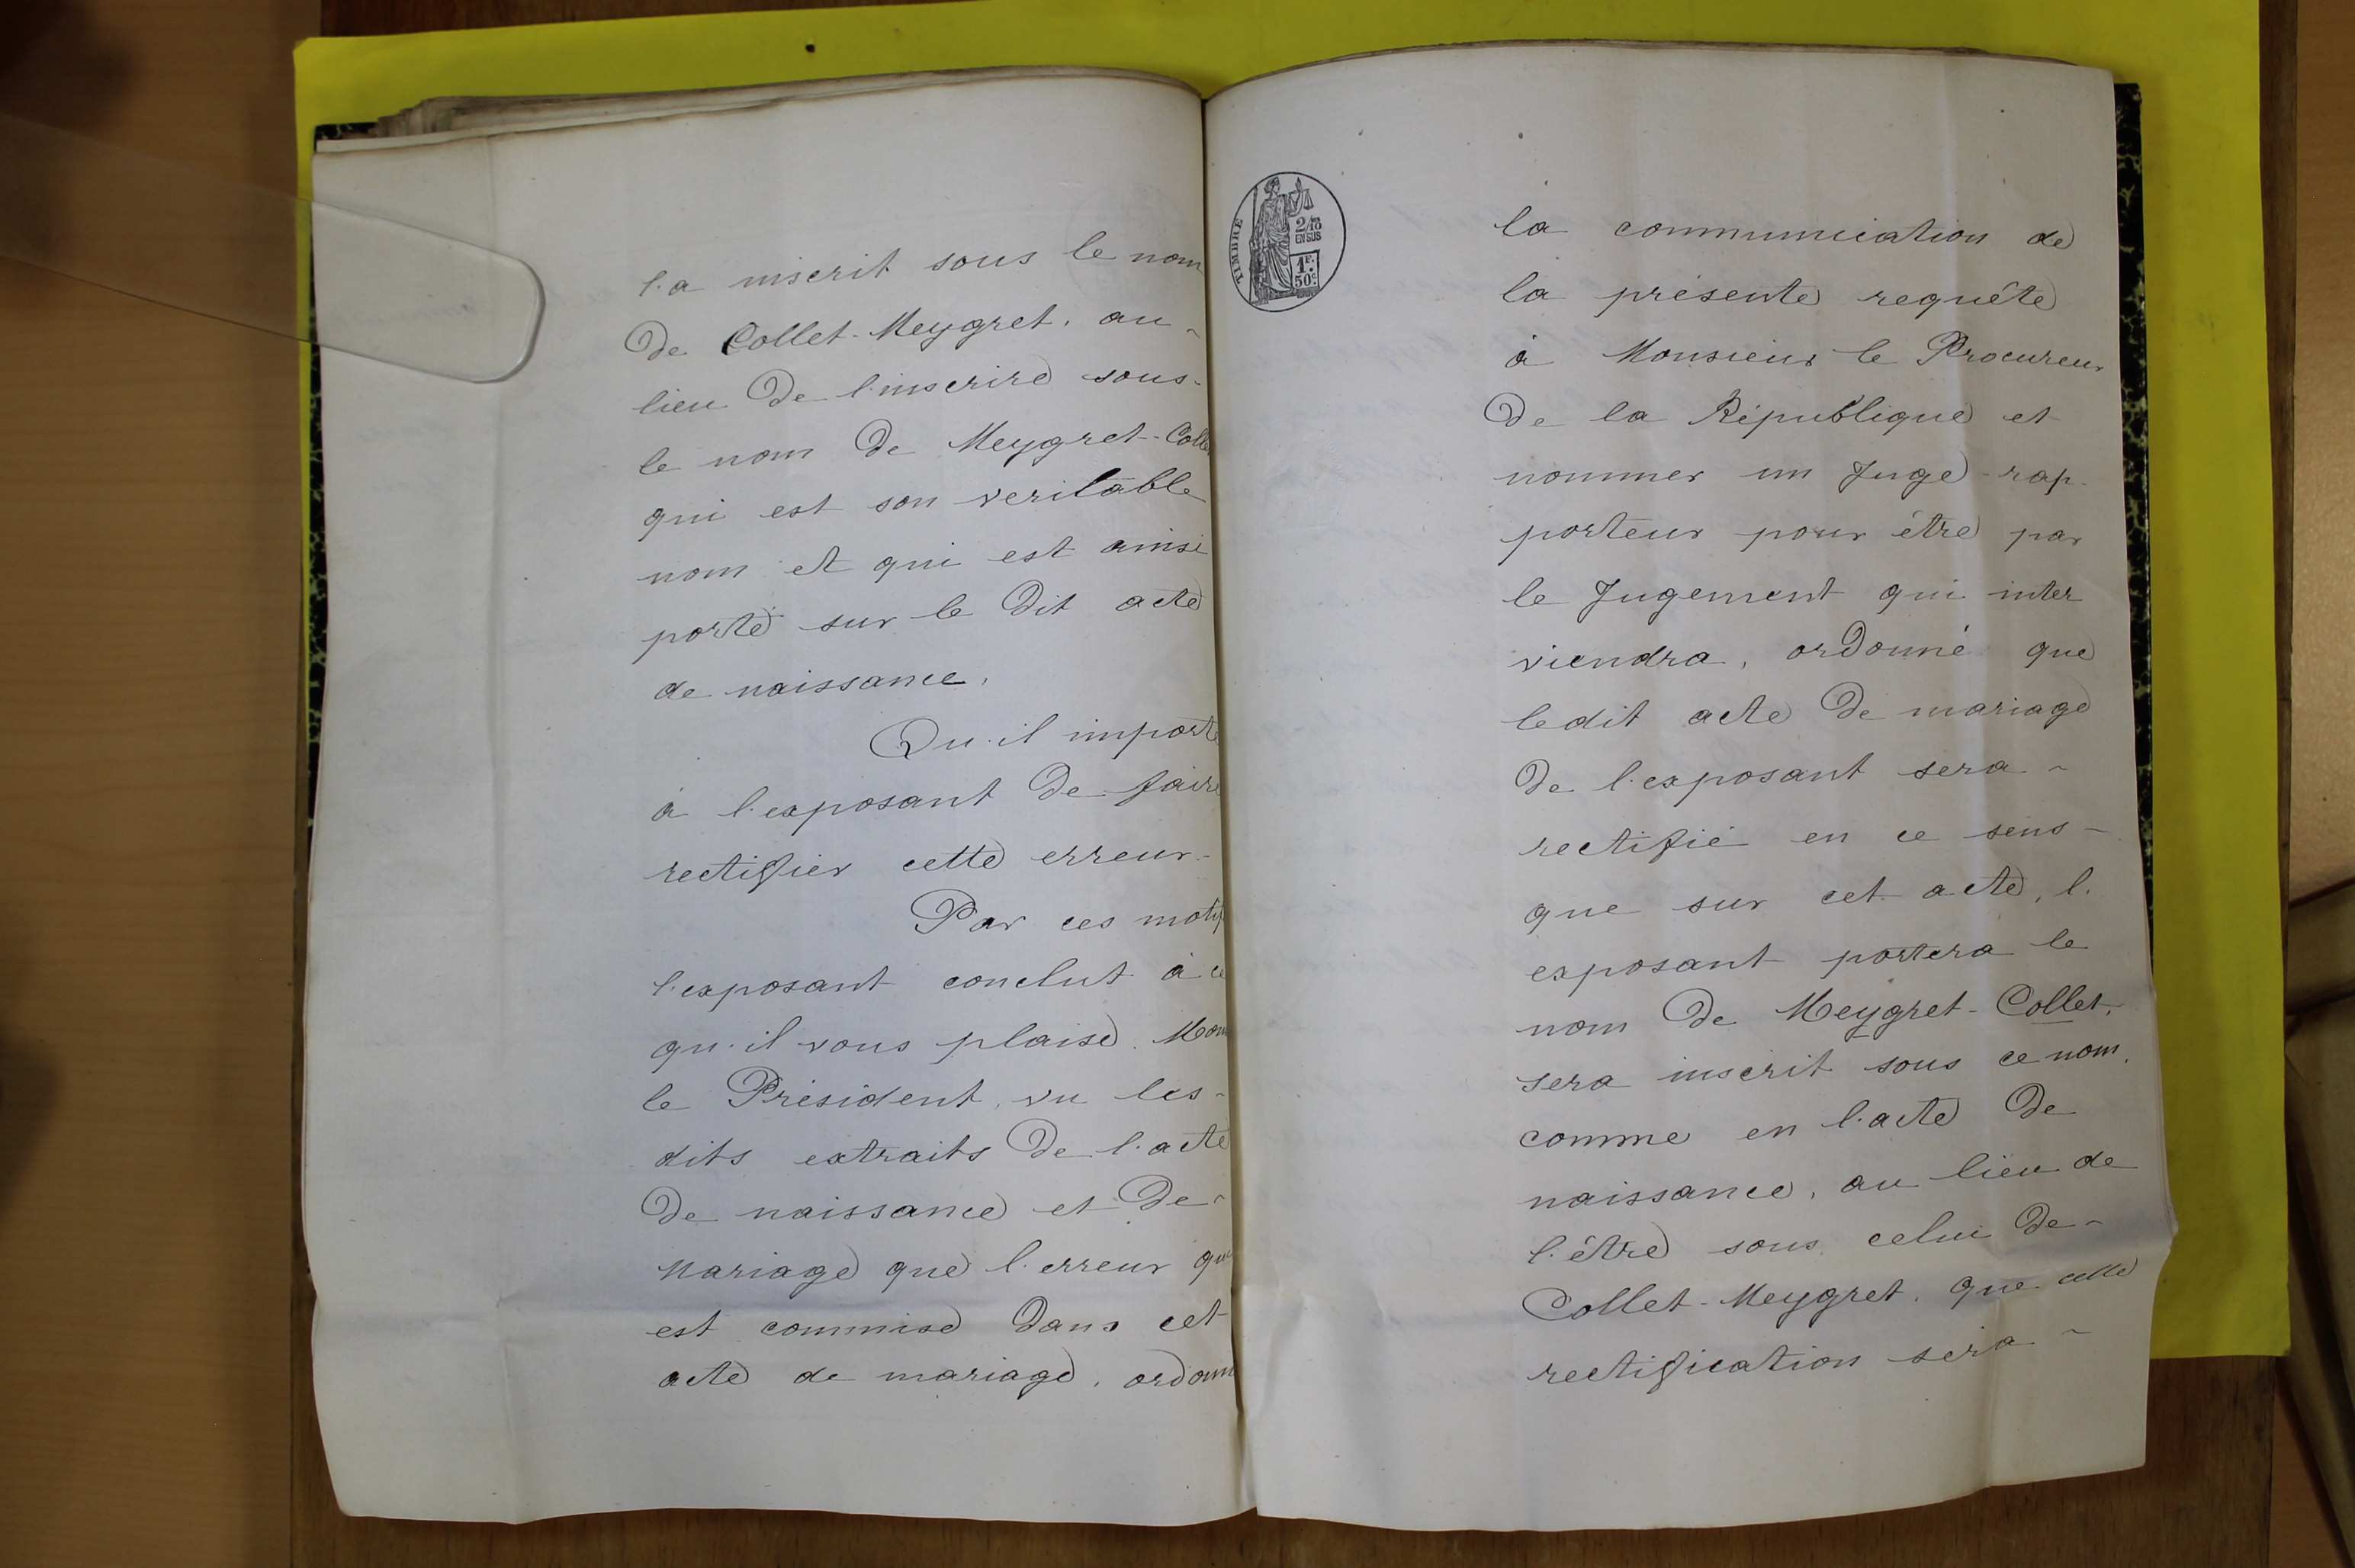 l'a inscrit sous le nom
de Collet-Meygret, au
lieu de l'inscrire sous
le nom de Meygret-Coll
qui est son veritable
nom et qui est ainsi
porté sur le dit acte
de naissance.
Qu'il importe
à l'exposant de faire
rectifier cette erreur.
Par ces motif
l'exposant conclut à ce
qu'il vous plaise, Mon
le Président, vu les-
dits extraits de l'acte
de naissance et de
mariage que l'erreur qu
est commise dans cet
acte de mariage, ordonn
TIMBRE
2/10
EN SUS
1F.
50c
la communication de
la présente requête
à Monsieur le Procureur
de la République et
nommer un Juge-rap-
porteur pour être par
le Jugement qui inter
viendra, ordonné que
ledit acte de mariage
de l'exposant sera
rectifié en ce sens
que sur cet acte, l'
exposant portera le
nom de Meygret-Collet,
sera inscrit sous ce nom,
comme en l'acte de
naissance, au lieu de
l'être sous celui de
Collet-Meygret, que cette
rectification sera